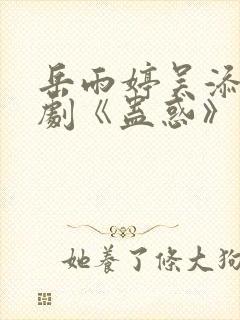 岳雨婷吴添
劇《蠱惑》
她養了條大狗